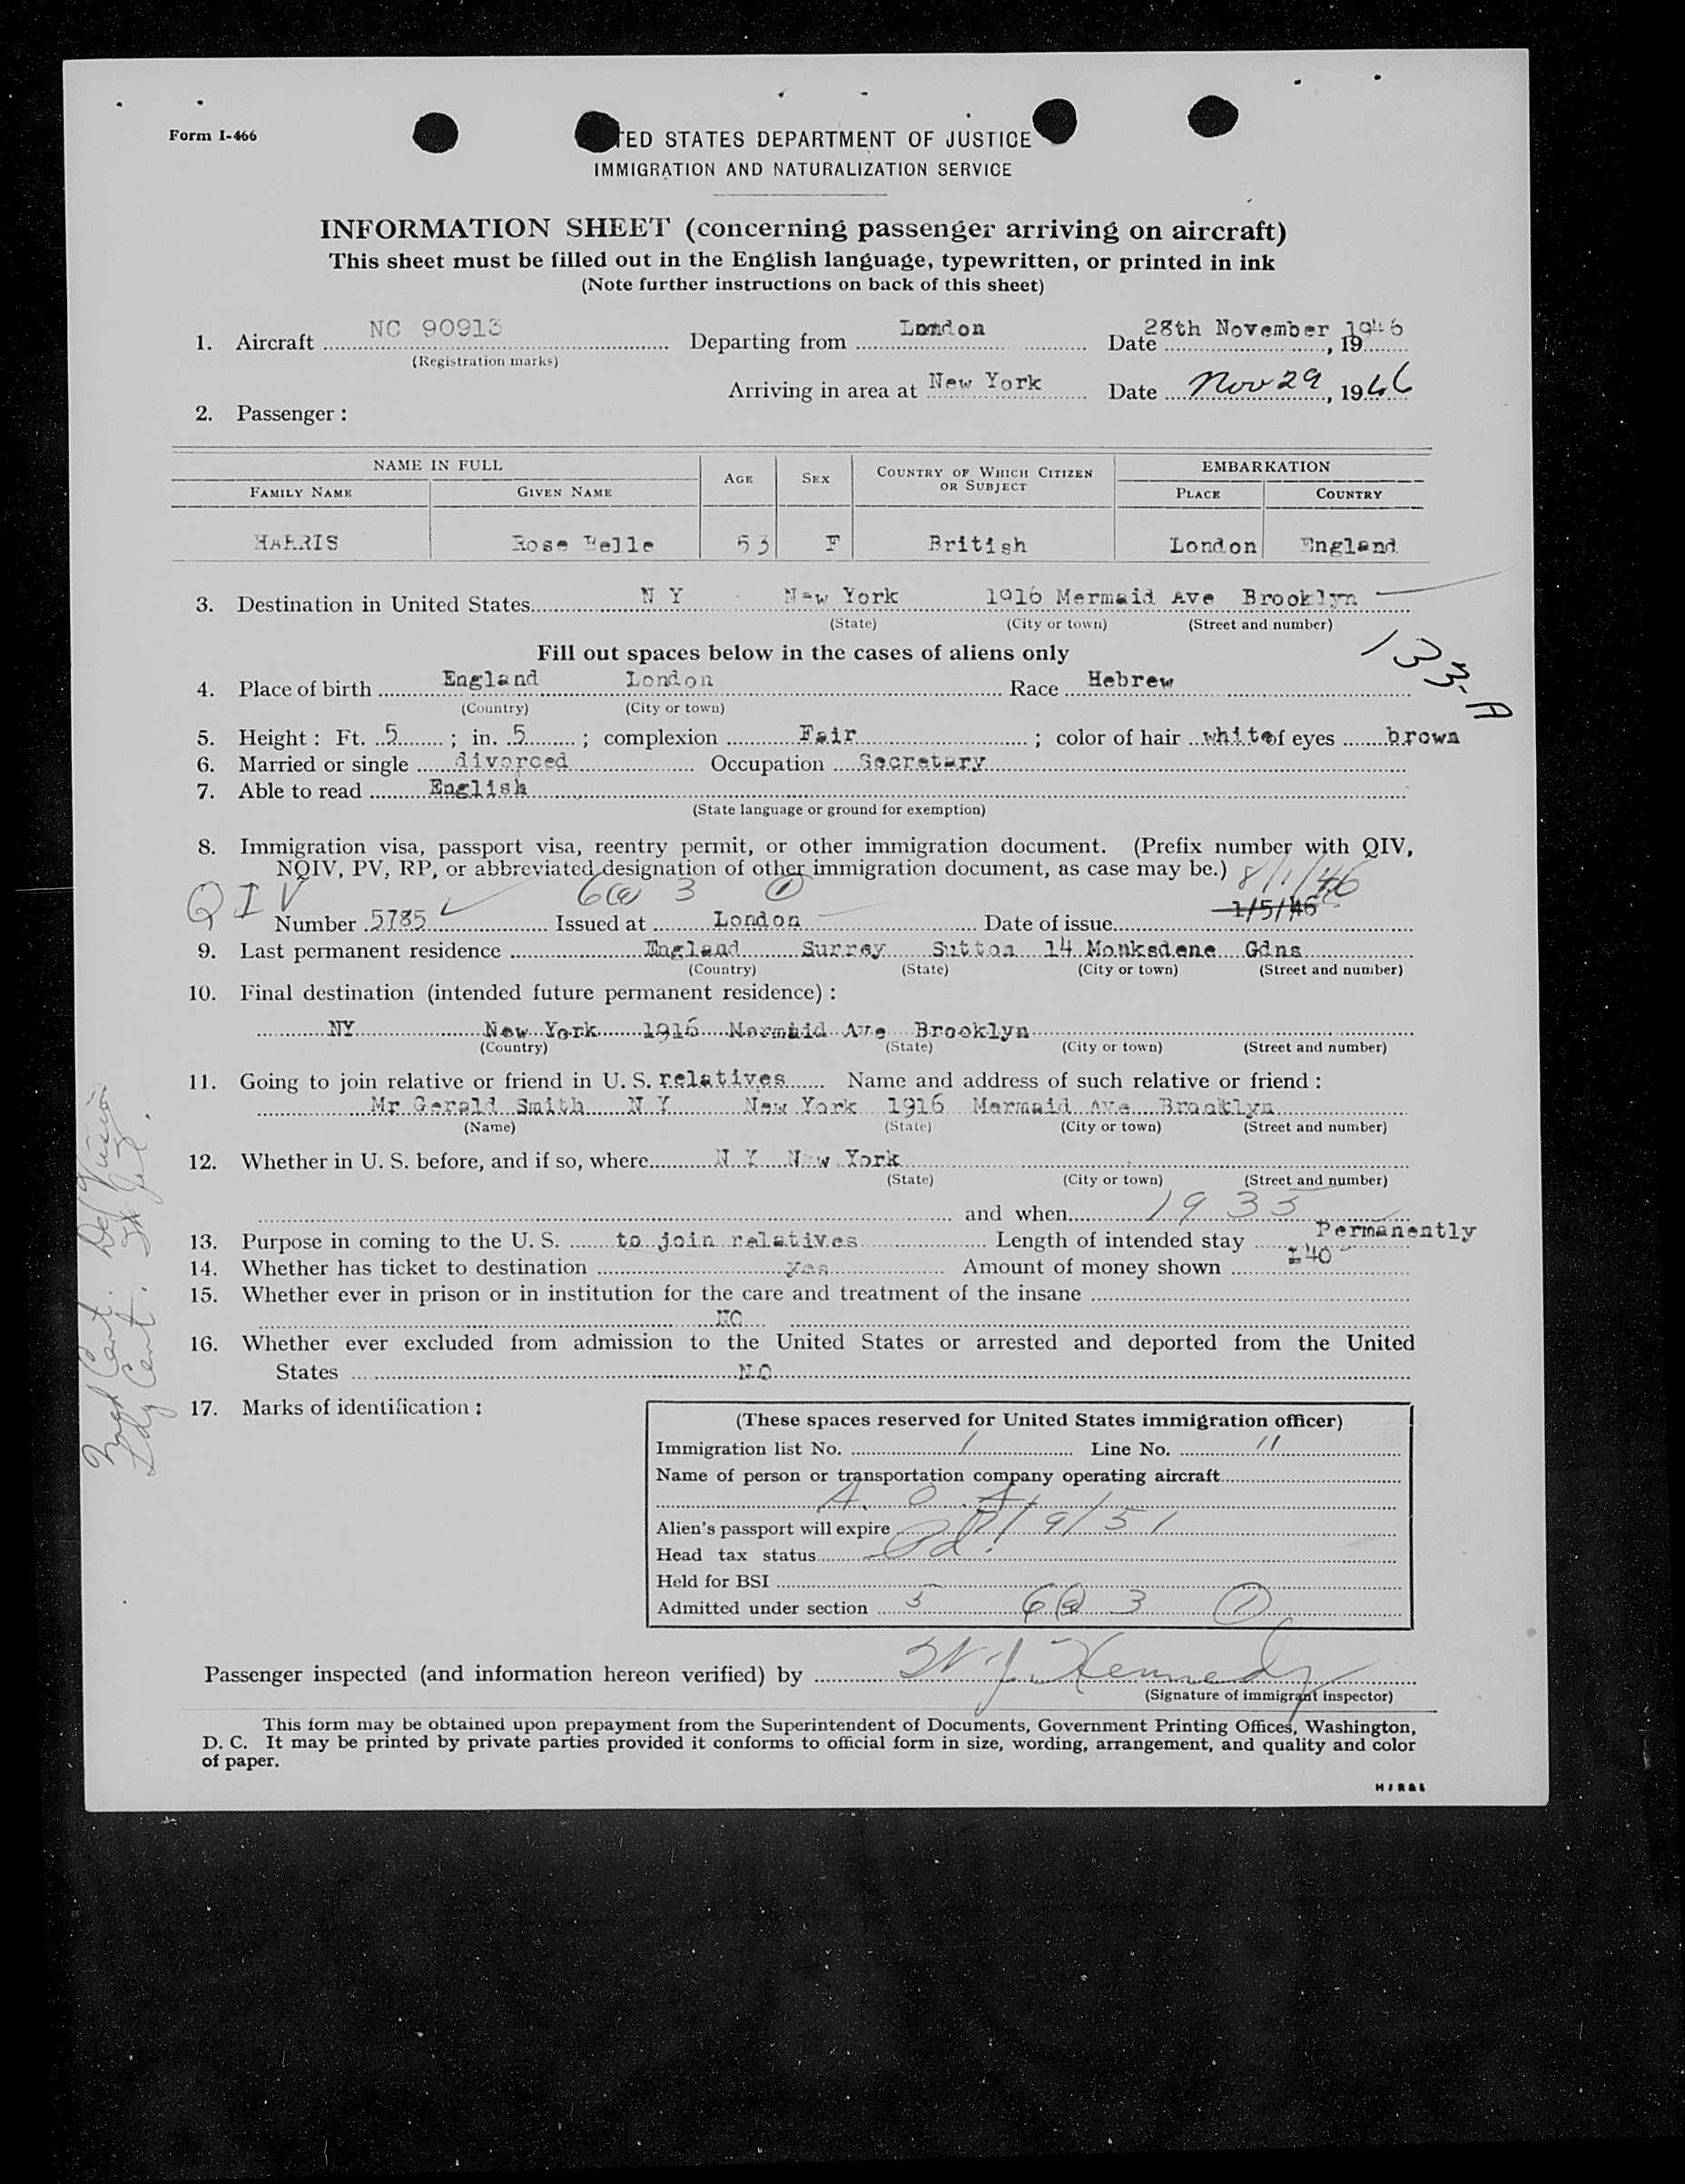 Form I-466
TED STATES DEPARTMENT OF JUSTICE
IMMIGRATION AND NATURALIZATION SERVICE
INFORMATION SHEET (concerning passenger arriving on aircraft)
This sheet must be filled out in the English language, typewritten, or printed in ink
(Note further instructions on back of this sheet)
1. Aircraft NC 90913 Departing from London Date 28th November, 1946
(Registration marks)
Arriving in area at New York Date Nov 29, 1946
2. Passenger:
NAME IN FULL AGE SEX COUNTRY OF WHICH CITIZEN OR SUBJECT EMBARKATION
FAMILY NAME GIVEN NAME PLACE COUNTRY
HARRIS Rose Belle 53 F British London England
3. Destination in United States N Y New York 1916 Mermaid Ave Brooklyn
(State) (City or town) (Street and number)
133-A
Fill out spaces below in the cases of aliens only
4. Place of birth England London Race Hebrew
(Country) (City or town)
5. Height: Ft. 5; in. 5; complexion Fair; color of hair white of eyes brown
6. Married or single divorced Occupation Secretary
7. Able to read English
(State language or ground for exemption)
8. Immigration visa, passport visa, reentry permit, or other immigration document. (Prefix number with QIV,
NQIV, PV, RP, or abbreviated designation of other immigration document, as case may be.) 8/1/46
QIV 6(a) 3 (1)
Number 5785 Issued at London Date of issue 1/5/46
9. Last permanent residence England Surrey Sutton 14 Monksdene Gdns
(Country) (State) (City or town) (Street and number)
10. Final destination (intended future permanent residence):
NY New York 1916 Mermaid Ave Brooklyn
(Country) (State) (City or town) (Street and number)
11. Going to join relative or friend in U. S. relatives Name and address of such relative or friend:
Mr Gerald Smith N Y New York 1916 Mermaid Ave Brooklyn
(Name) (State) (City or town) (Street and number)
12. Whether in U. S. before, and if so, where N Y New York
(State) (City or town) (Street and number)
and when 1935
13. Purpose in coming to the U. S. to join relatives Length of intended stay Permanently
14. Whether has ticket to destination yes Amount of money shown £40
15. Whether ever in prison or in institution for the care and treatment of the insane
NO
16. Whether ever excluded from admission to the United States or arrested and deported from the United
States NO
17. Marks of identification:
(These spaces reserved for United States immigration officer)
Immigration list No. 1 Line No. 11
Name of person or transportation company operating aircraft
A. O. A.
Alien's passport will expire /9/51
Head tax status Pd.
Held for BSI
Admitted under section 5 6(a) 3 (1)
Passenger inspected (and information hereon verified) by W. J. Kennedy
(Signature of immigrant inspector)
This form may be obtained upon prepayment from the Superintendent of Documents, Government Printing Offices, Washington,
D. C. It may be printed by private parties provided it conforms to official form in size, wording, arrangement, and quality and color
of paper.